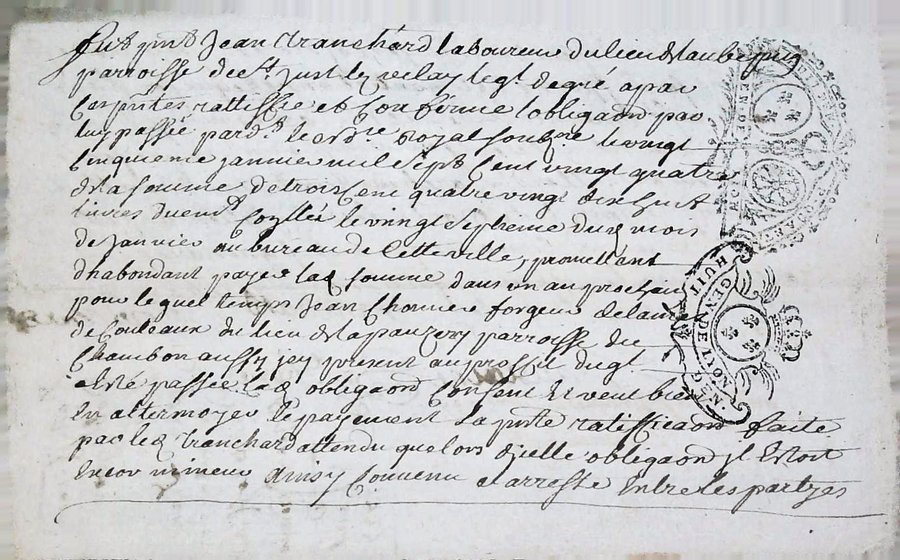 fut pnt Jean Tranchard laboureur du lieu de laubepin
parroisse de St Just lez velay leql de gré a par
Ces pntes rattiffie et Confirme lobligaon par
luy passée pard. le nore Royal soubzne le vingt
Cinquieme janvier mil sept Cent vingt quatre
de la somme de trois Cent quatre vingt dix huit
livres duemt Collée le vingt septieme dud mois
de janvier au bureau de Cette ville, promettant
dhabondant payer lad somme dans un an prochain
pour lequel temps Jean Chomier forgeur de lames
de Couteaux du lieu de la parroisse du
Chambon aussy jcy present au proffit duql
a esté passée lad obligaon Consent et veut bien
en attermoyer le payement la pnte rattiffication faite
par led Tranchard attendu que lors dicelle obligaon jl estoit
encor mineur ainsy Convenu et arresté entre les partyes
HUIT
GEN DE
NOTE